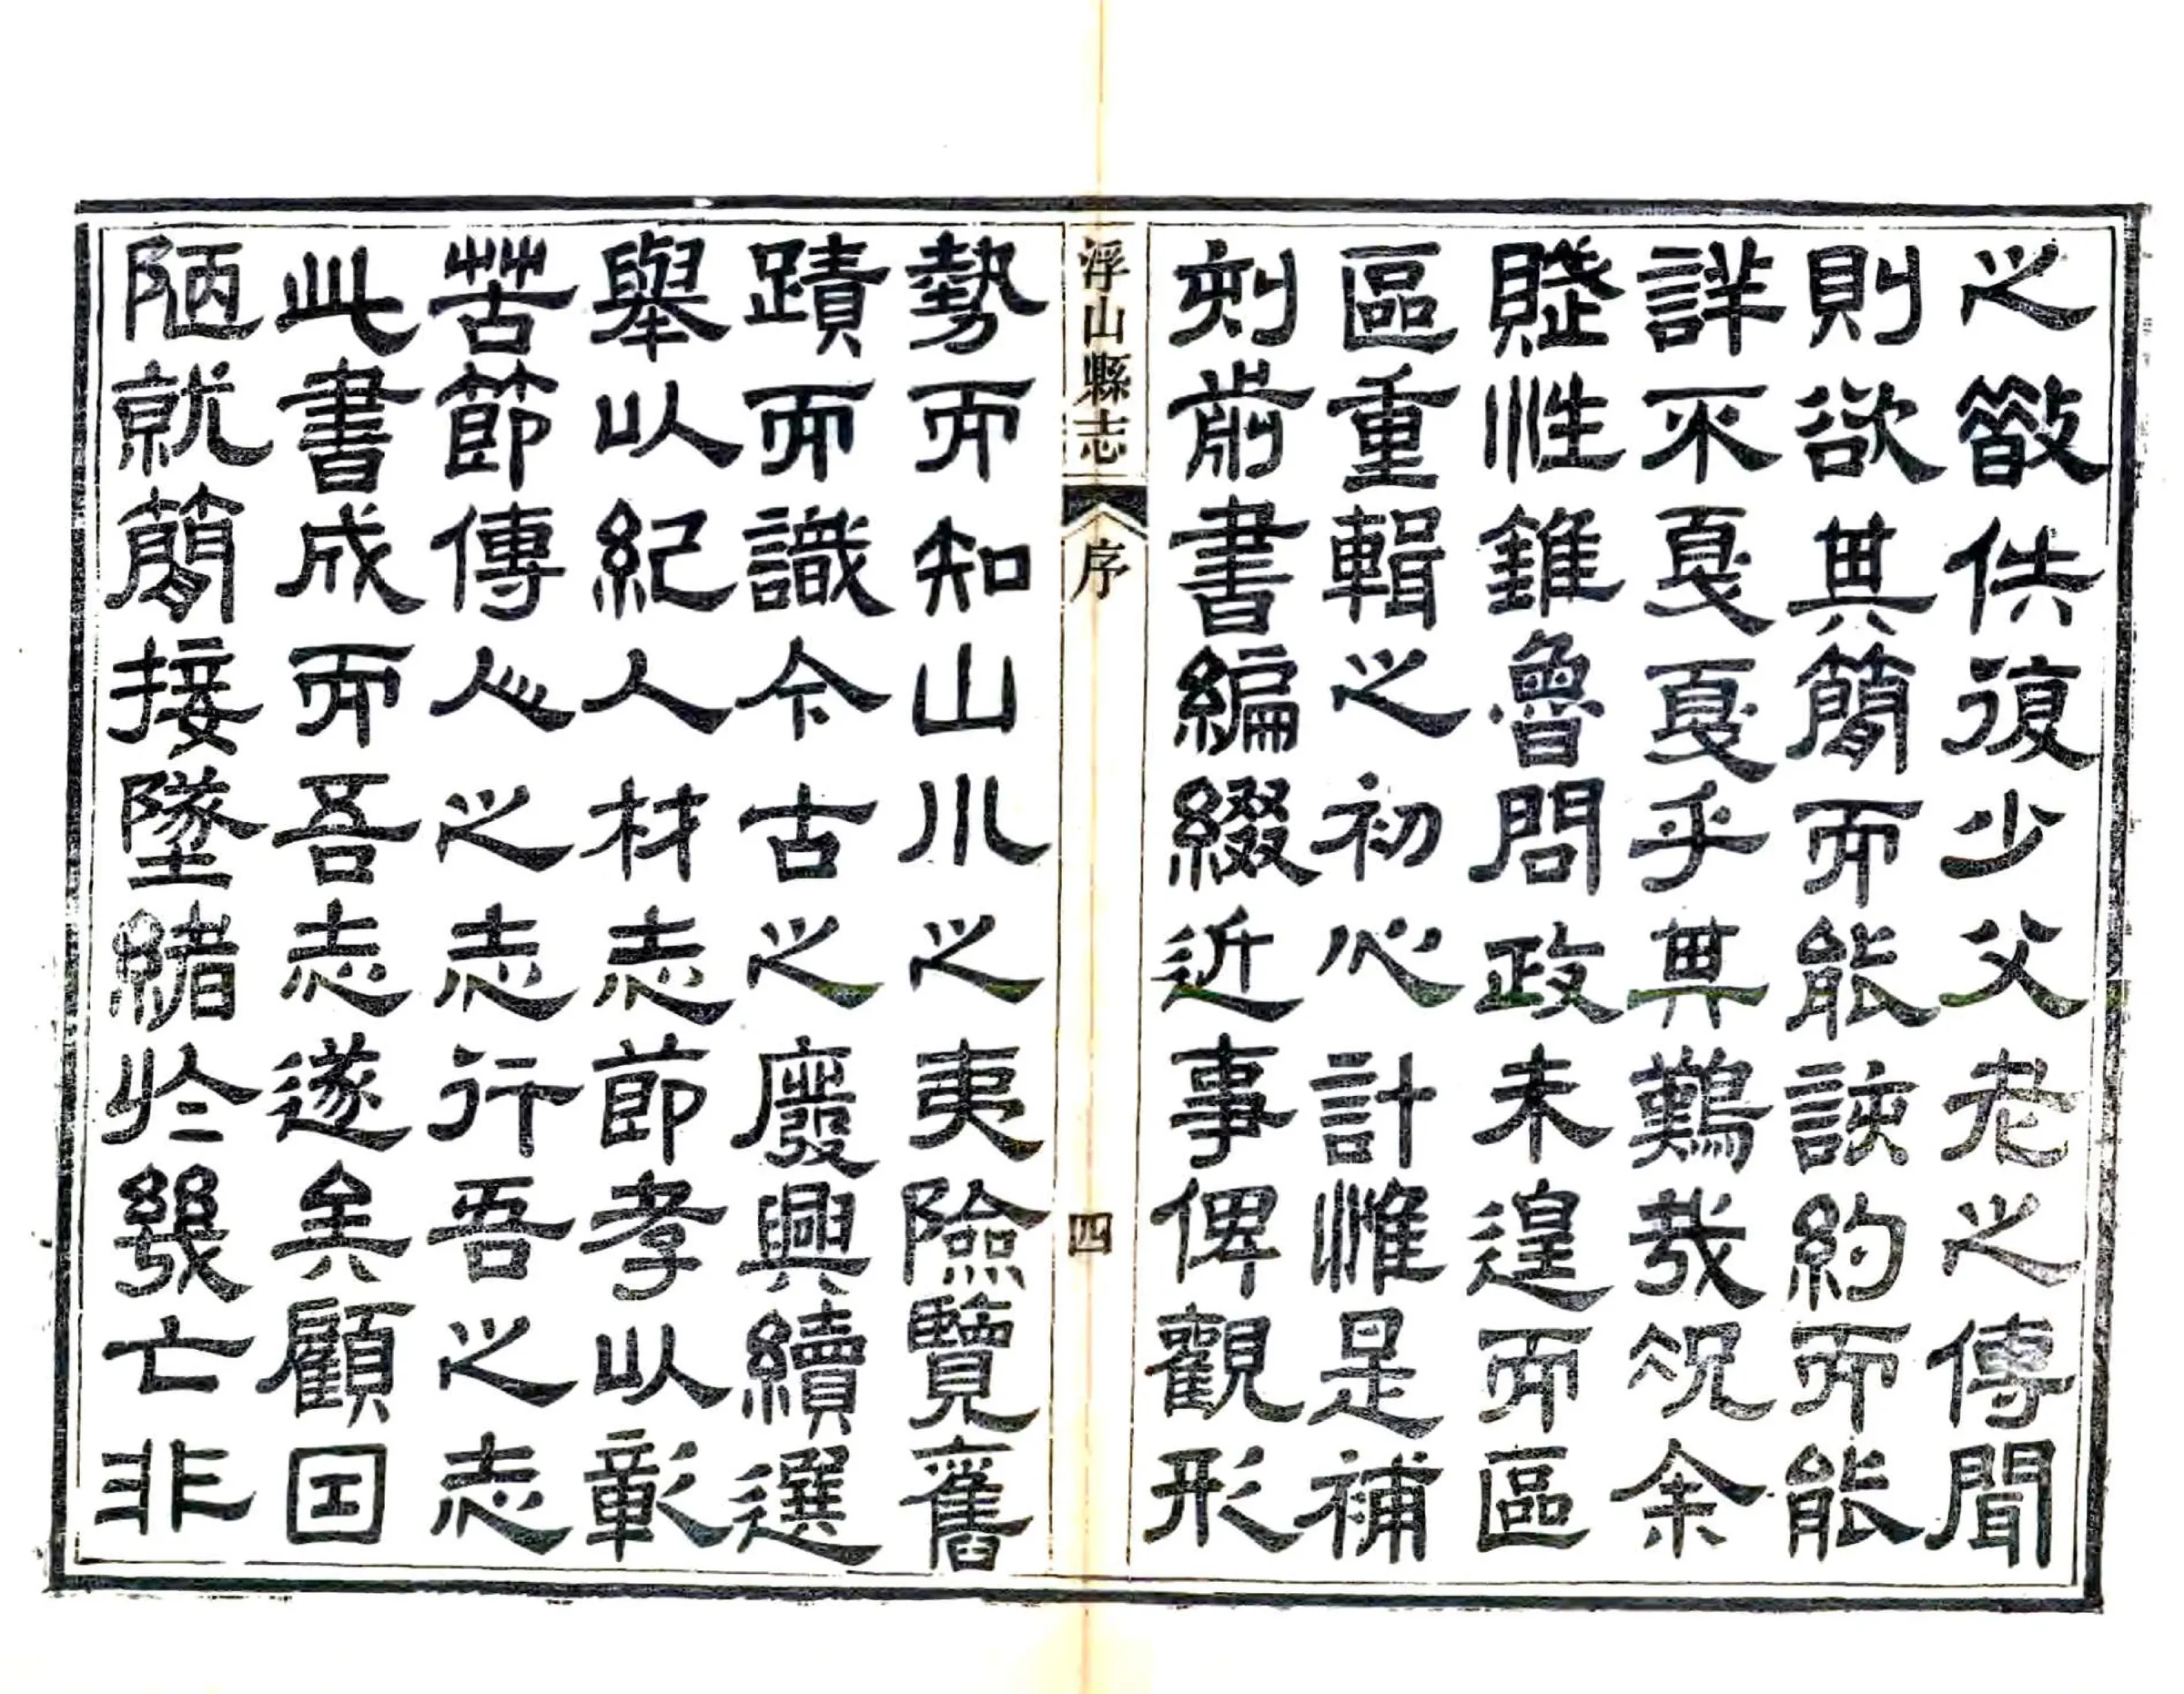 之散佚復少父老之傳聞
則欲其簡而能該約而能
詳不戛戛乎其難哉況余
賦性錐魯問政未遑而區
區重輯之初心計惟是補
刻前書編綴近事俾觀形
浮山縣志 序 四
勢而知山川之夷險覽舊
蹟而識今古之廢興續選
舉以紀人材志節孝以彰
苦節傳人之志行吾之志
此書成而吾志遂矣顧因
陋就簡接墜緒於幾亡非